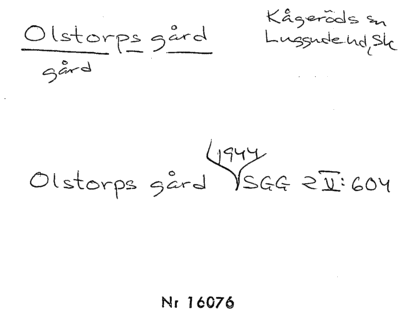 Olstorps gård
gård
Kågeröds sn
Luggude hd, Sk
1944
Olstorps gård SGG 2 V: 604
Nr 16076